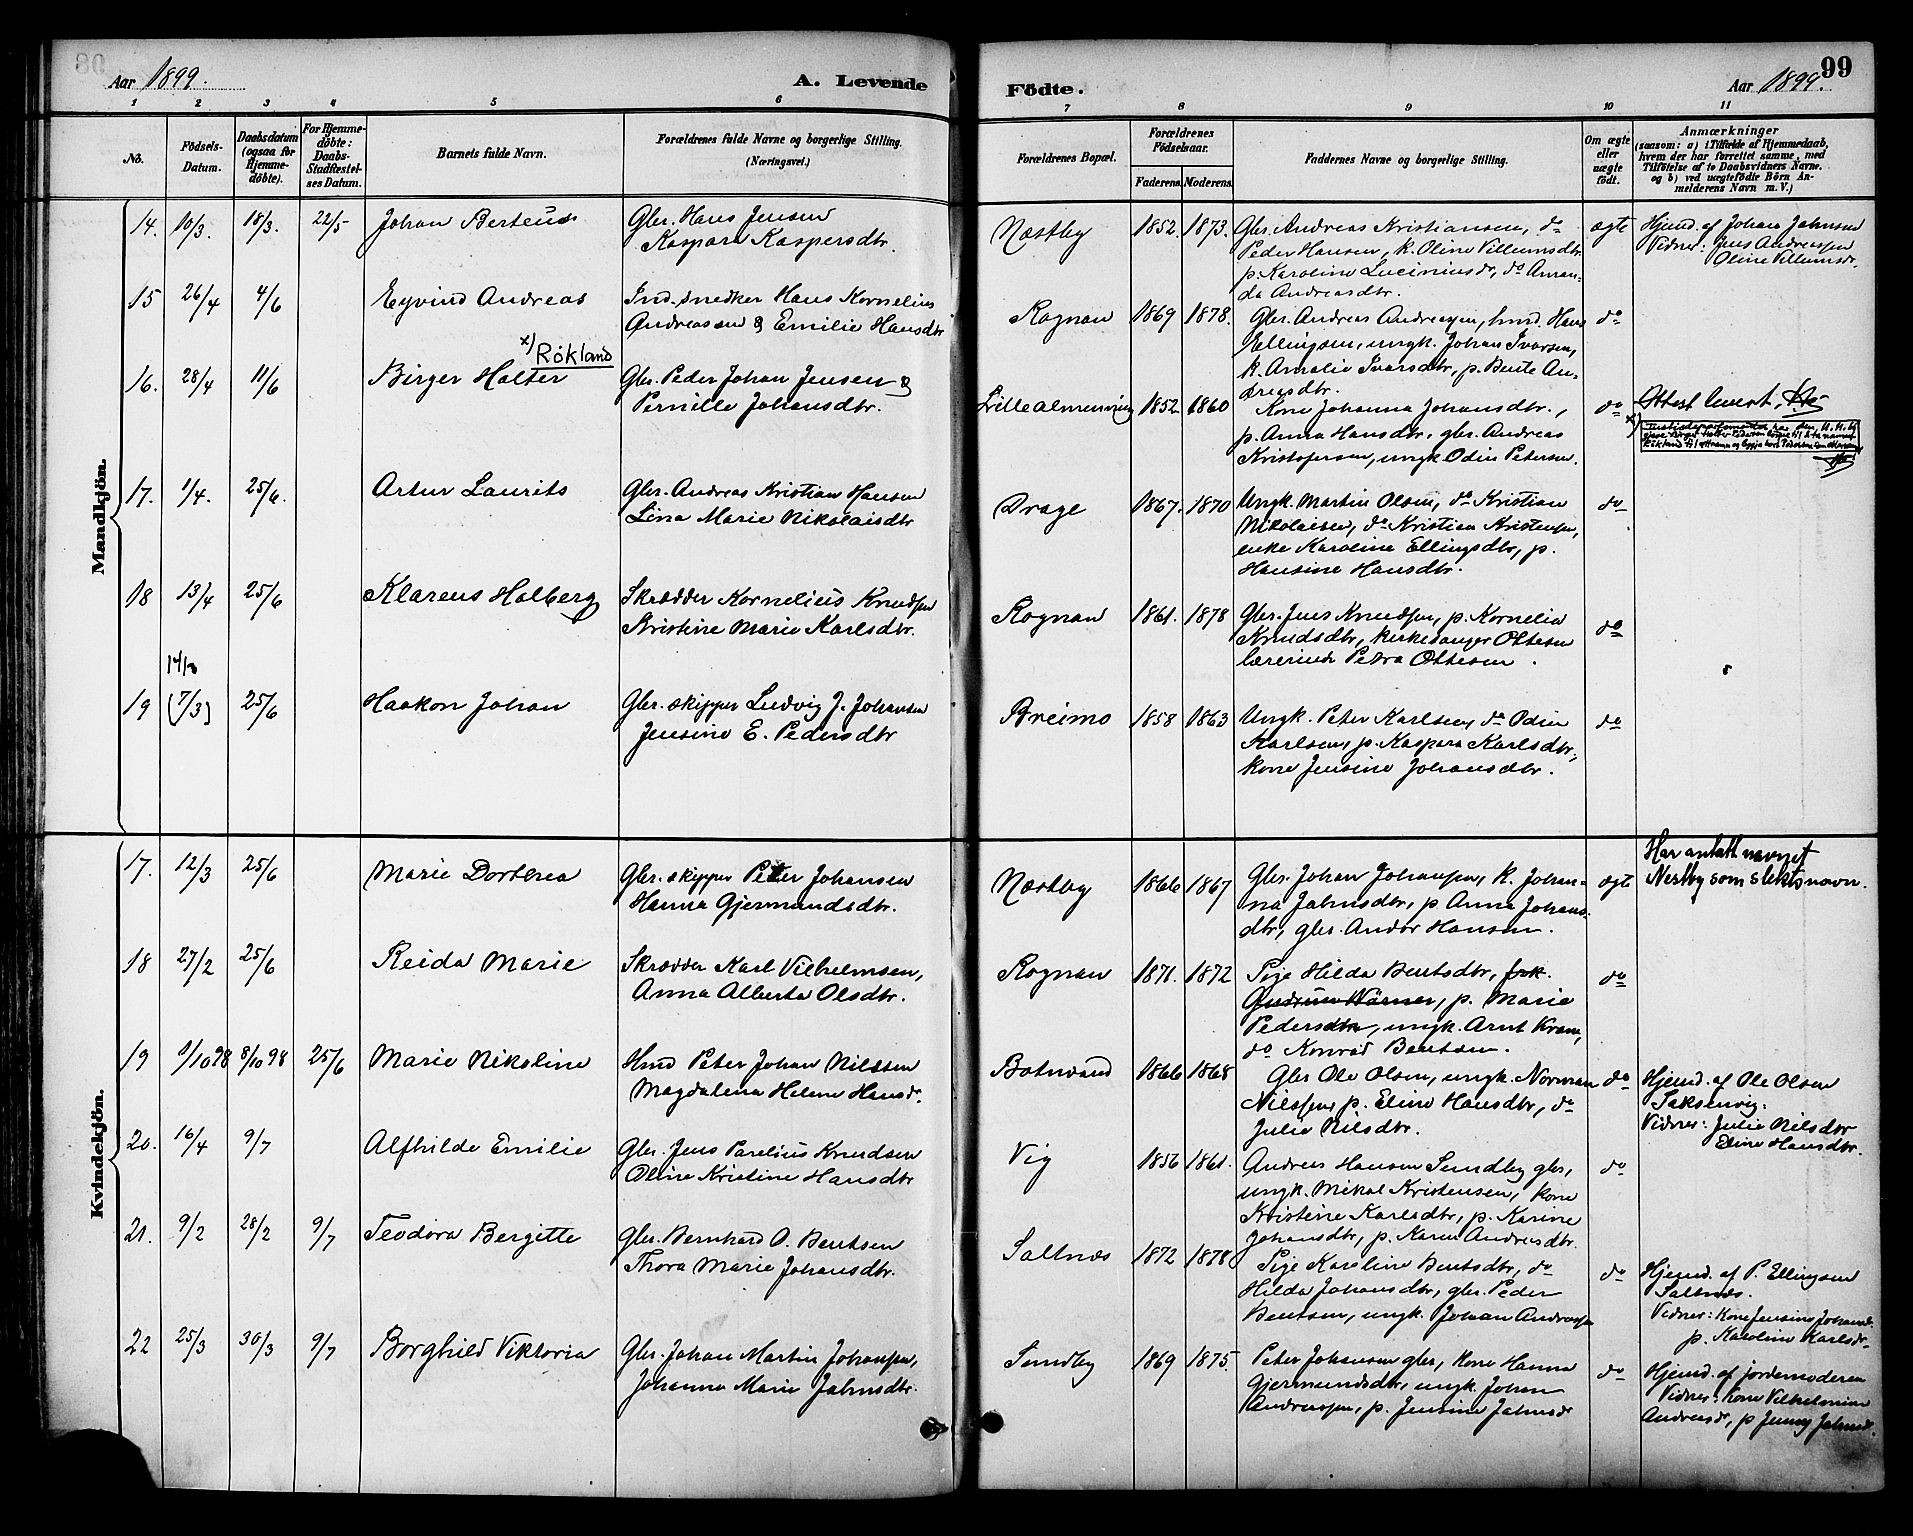 Aar 1899.
A. Levende
Födte.
Aar 1899.
99
1 2 3 4 5 6 7 8 9 10 11
No.
Födsels-
Datum.
Daabsdatum
(ogsaa for
Hjemme-
döbte).
For Hjemme-
döbte:
Daabs-
Stadfæstel-
ses Datum.
Barnets fulde Navn.
Forældrenes fulde Navne og borgerlige Stilling.
(Næringsvei.)
Forældrenes Bopæl.
Forældrenes
Födselsaar.
Faderens. Moderens.
Faddernes Navne og borgerlige Stilling.
Om ægte
eller
uægte
födt.
Anmærkninger
(saasom: a) i Tilfælde af Hjemmedaab,
hvem der har forrettet samme, med
Tilföielse af to Daabsvidners Navne.
og b) ved uægtefödte Börn An-
melderens Navn m. V.)
Mandkjön.
14. 10/3. 18/3. 22/5 Johan Berteus
Gbr. Hans Jensen
Kaspara Kaspersdtr.
Næstby 1852. 1873.
Gbr. Andreas Kristiansen, do
Peder Hansen, k. Oline Villumsdtr.
p. Karoline Luciniusd., do Aman-
da Andreasdtr.
ægte
Hjemd. af Johan Jahnsen
Vidner: Jens Andreassen
Oline Villumsdr.
15 26/4 4/6 Eyvind Andreas
Ind. snedker Hans Kornelius
Andreassen & Emilie Hansdtr
Rognan 1869 1878.
Gbr. Andreas Andreassen, hmd. Hans
Ellingsen, ungk. Johan Ivarsen,
k. Amalie Ivarsdtr, p. Bente An-
dreasdtr.
do
x) Rökland
16. 28/4 11/6 Birger Halter
Gbr. Peder Johan Jensen &
Pernille Johansdtr.
Lillealmenning 1852 1860
Kone Johanna Johansdtr.,
p. Anna Hansdtr, gbr. Andreas
Kristofersen, ungk Odin Petersen.
do
Attest levert,
x)
17. 1/4. 25/6. Artur Laurits
Gbr. Andreas Kristian Hansen
Lina Marie Nikolaisdtr
Drage 1867. 1870
Ungk. Martin Olsen, do Kristian
Nikolaisen, do Kristian Kristensen,
enke Karoline Ellingsdtr, p.
Hansine Hansdtr.
do
18 13/4 25/6 Klareus Holberg
Skrædder Kornelius Knudsen
Kristine Marie Karlsdtr.
Rognan 1861. 1878
Gbr. Jens Knudsen, p. Kornelia
Knudsdtr, kirkesanger Ottesen
lærerinde Petra Ottesen.
do
19 (7/3) 25/6 Haakon Johan
Gbr. skipper Ludvig J. Johansen
Jensine E. Pedersdtr
Breimo 1858 1863
Ungk. Peter Karlsen, do Odin
Karlsen, p. Kaspara Karlsdtr,
kone Jensine Johansdtr.
do
Kvindekjön.
17. 12/3 25/6 Marie Dortea
Gbr. skipper Peter Johansen
Hanna Gjermundsdtr.
Næstby 1866 1867
Gbr. Johan Johansen, k. Johan-
na Jahnsdtr, p Anna Johans-
dtr, gbr. Andor Hansen.
ægte
Har antatt navnet
Nestby som slektsnavn.
18 27/2 25/6 Reida Marie
Skrædder Karl Vilhelmsen,
Anna Alberta Olsdtr.
Rognan 1871. 1872
Pige Hilda Bentsdtr, frk.
Gudrun Warner, p. Marie
Pedersdtr, ungk. Arnt Krane,
do Konrad Bentsen.
do
19 1/10 98 8/10 98 25/6 Marie Nikoline
Hmd Peter Johan Nilssen
Magdalena Helene Hansd.
Botnvand 1866 1868
Gbr Ole Olsen, ungk. Norman
Nilssen, p. Eline Hansdtr, do
Julie Nilsdtr.
do
Hjemd. af Ole Olsen
Saksenvig.
Vidner: Julie Nilsdtr
Eline Hansdtr.
20. 16/4 9/7 Alfhilde Emilie
Gbr. Jens Parelius Knudsen
Oline Kristine Hansdtr
Vig 1856 1861.
Andreas Hansen Sundby gbr,
ungk. Mikal Kristensen, kone
Kristine Karlsdtr, p. Karine
Johansdtr, p. Karen Andreasdtr.
do
21. 9/2 28/2 9/7 Teodora Bergitte
Gbr. Bernhard O. Bentsen
Thora Marie Johansdtr.
Saltnæs 1872 1878
Pige Karoline Bentsdtr, do
Hilda Johansdtr, gbr. Peder
Bentsen, ungk. Johan Andreassen
do
Hjemd. af P. Ellingsen
Saltnæs.
Vidner: Kone Jensine Johansd.
p. Karoline Karlsdr.
22 25/3 30/3 9/7 Borghild Viktoria
Gbr. Johan Martin Johansen,
Johanna Marie Jahnsdtr.
Sundby 1869 1875.
Peter Johansen gbr, kone Hanna
Gjermundsdtr, ungk. Johan
Andreassen, p. Jensine Jahnsd.
do
Hjemd. af jordemoderen
Vidner: Kone Vilhelmine
Andreasd., p Jenny Jahnsd.